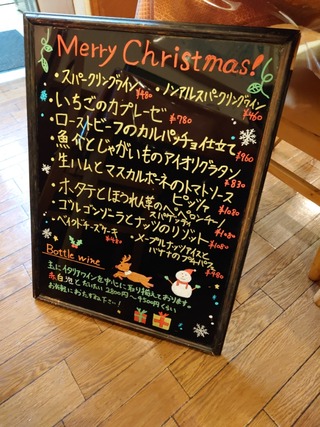 Merry Christmas!
・スパークリングワイン ¥480 ・ノンアルスパークリングワイン ¥460
・いちごのカプレーゼ ¥780
・ローストビーフのカルパッチョ仕立て ¥960
・魚介とじゃがいものアイオリグラタン ¥830
・生ハムとマスカルポーネのトマトソース
ピッツァ ¥1080
・ホタテとほうれん草のペペロンチーノ
スパゲッティ ¥1080
・ゴルゴンゾーラとナッツのリゾット ¥1080
・ベイクドチーズケーキ ¥480 ・メープルナッツアイスと
バナナのプチパフェ ¥480
Bottle wine
主にイタリアワインを中心に取り揃えております。
赤白泡とだいたい2800円〜4500円くらい
お気軽におたずね下さい!